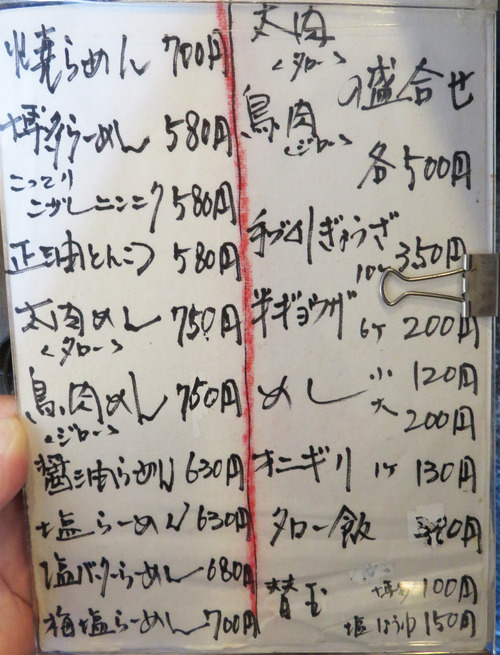 焼らめん 700円
博多らーめん 580円
こってり
こがしニンニク 580円
正油とんこつ 580円
太肉めし 750円
<タロー>
鳥肉めん 750円
<ジロー>
醤油らーめん 630円
塩らーめん 630円
塩バターらーめん 680円
梅塩らーめん 700円
太肉
<タロー>
の盛合せ
鳥肉
<ジロー>
各500円
手づくりぎょうざ
10ヶ 350円
半ギョウザ 6ヶ 200円
めし 小 120円
大 200円
オニギリ 1ヶ 130円
タロー飯
替玉 博多 100円
塩 しょうゆ 150円